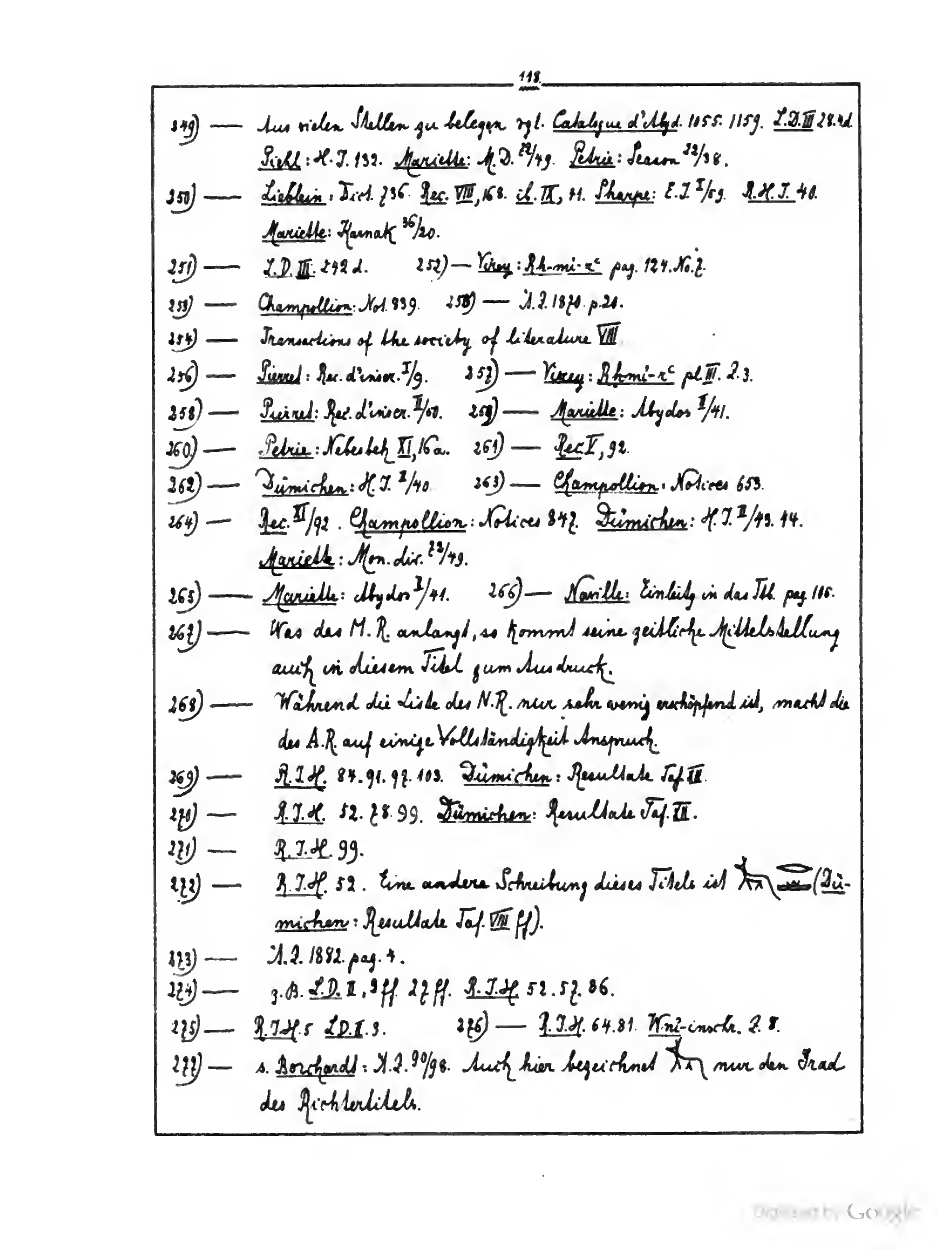 118.
249) — Aus vielen Stellen zu belegen vgl. Catalogue d'Abyd. 1055. 1159. L.D. III 28.4d
Piehl: H.I. 132. Mariette: M.D. 72/49. Petrie: Season 22/38.
250) — Lieblein: Dict. 736. Rec. VIII, 168. ib. IX, 41. Sharpe: E.I. I/59. R.H.I. 40.
Mariette: Karnak 36/20.
251) — L.D. III. 242 d. 252) — Virey: Rḫ-mi-rꜥ pag. 124. No. 7.
253) — Champollion: Not. 839. 255) — Ä.Z. 1870. p. 20.
254) — Transactions of the society of literature VIII
256) — Pierret: Rec. d'inscr. I/9. 257) — Virey: Rḫ-mi-rꜥ pl. III. Z. 3.
258) — Pierret: Rec. d'inscr. II/60. 259) — Mariette: Abydos II/41.
260) — Petrie: Nebesheh XI, 16a. 261) — Rec V, 92.
262) — Dümichen: H.I. I/40 263) — Champollion: Notices 653.
264) — Rec. XI/92. Champollion: Notices 847. Dümichen: H.I. II/43. 44.
Mariette: Mon. div. 72/49.
265) — Mariette: Abydos I/41. 266) — Naville: Einleitg in das Tb. pag. 105.
267) — Was das M.R. anlangt, so kommt seine zeitliche Mittelstellung
auch in diesem Titel zum Ausdruck.
268) — Während die Liste des N.R. nur sehr wenig erschöpfend ist, macht die
des A.R. auf einige Vollständigkeit Anspruch.
269) — R.I.H. 84. 91. 97. 103. Dümichen: Resultate Taf. IX.
270) — R.I.H. 52. 78. 99. Dümichen: Resultate Taf. IX.
271) — R.I.H. 99.
272) — R.I.H. 52. Eine andere Schreibung dieses Titels ist (Dü-
michen: Resultate Taf. VIII ff).
273) — Ä.Z. 1882. pag. 4.
274) — z.B. L.D. II, 9 ff. 27 ff. R.I.H. 52. 57. 86.
275) — R.I.H. 5 L.D. II. 3. 276) — R.I.H. 64. 81. Wni-inschr. Z. 8.
277) — s. Borchardt: Ä.Z. 90/98. Auch hier bezeichnet nur den Grad
des Richtertitels.
Digitized by Google